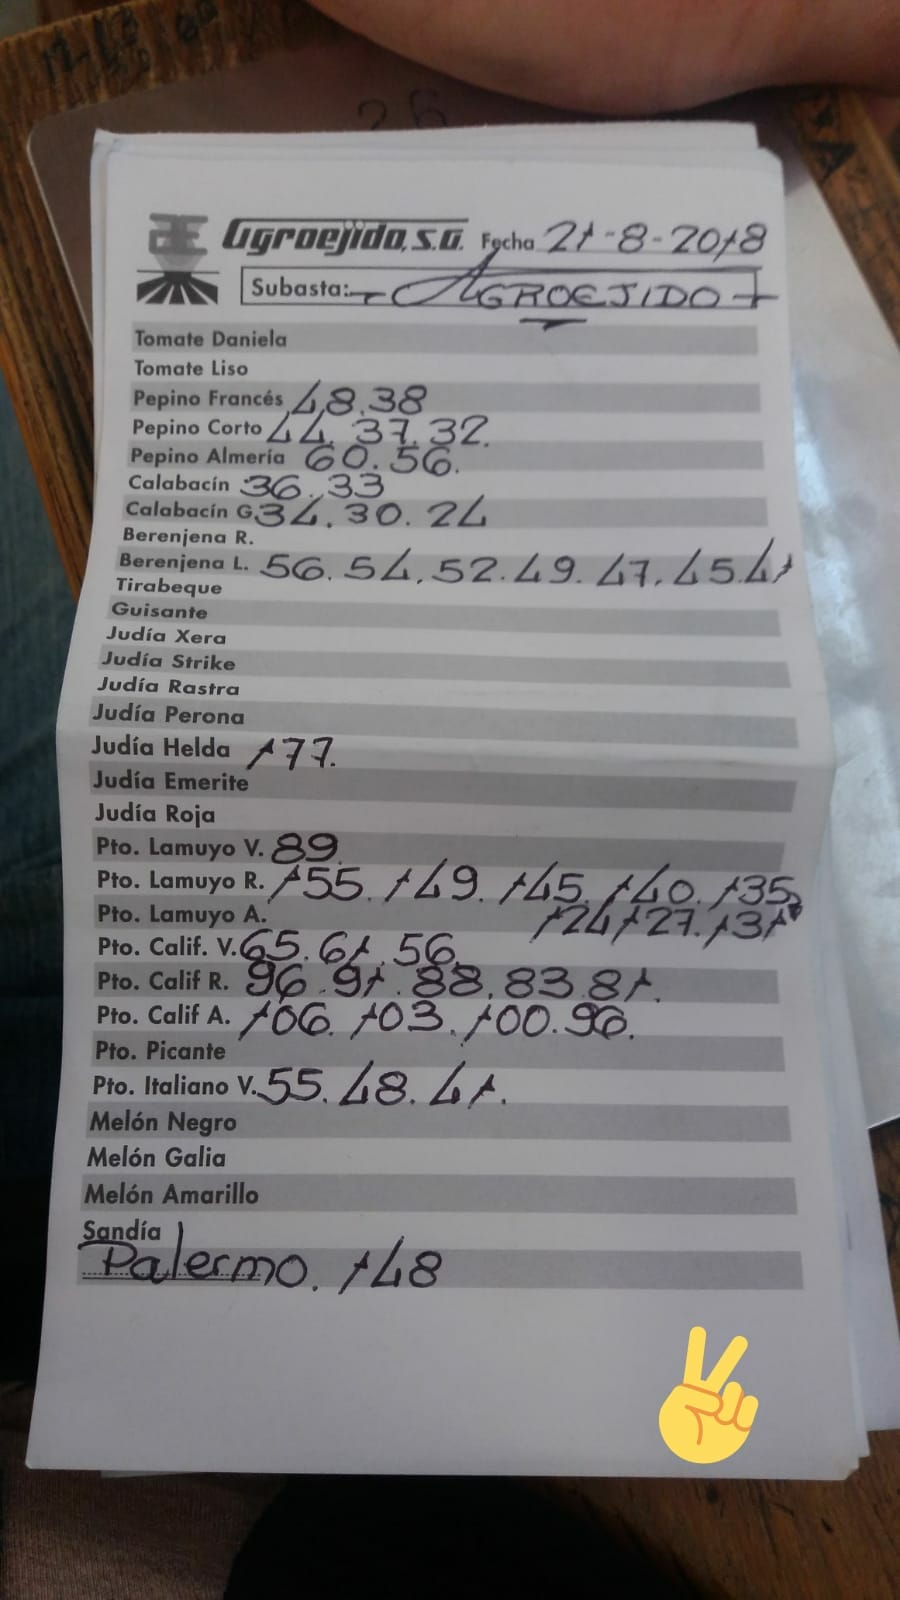 26
Agroejido, S.A. Fecha 21-8-2018
Subasta: AGROEJIDO
Tomate Daniela
Tomate Liso
Pepino Francés 48.38
Pepino Corto 44.37.32.
Pepino Almería 60.56.
Calabacín 36.33
Calabacín G. 34.30.24
Berenjena R.
Berenjena L. 56.54.52.49.47.45.41
Tirabeque
Guisante
Judía Xera
Judía Strike
Judía Rastra
Judía Perona
Judía Helda 177.
Judía Emerite
Judía Roja
Pto. Lamuyo V. 89
Pto. Lamuyo R. 155.149.145.140.135,
Pto. Lamuyo A. 124 127.131
Pto. Calif. V. 65.61.56
Pto. Calif R. 96.91.88.83.81.
Pto. Calif A. 106.103.100.96.
Pto. Picante
Pto. Italiano V. 55.48.41.
Melón Negro
Melón Galia
Melón Amarillo
Sandía
Palermo. 148